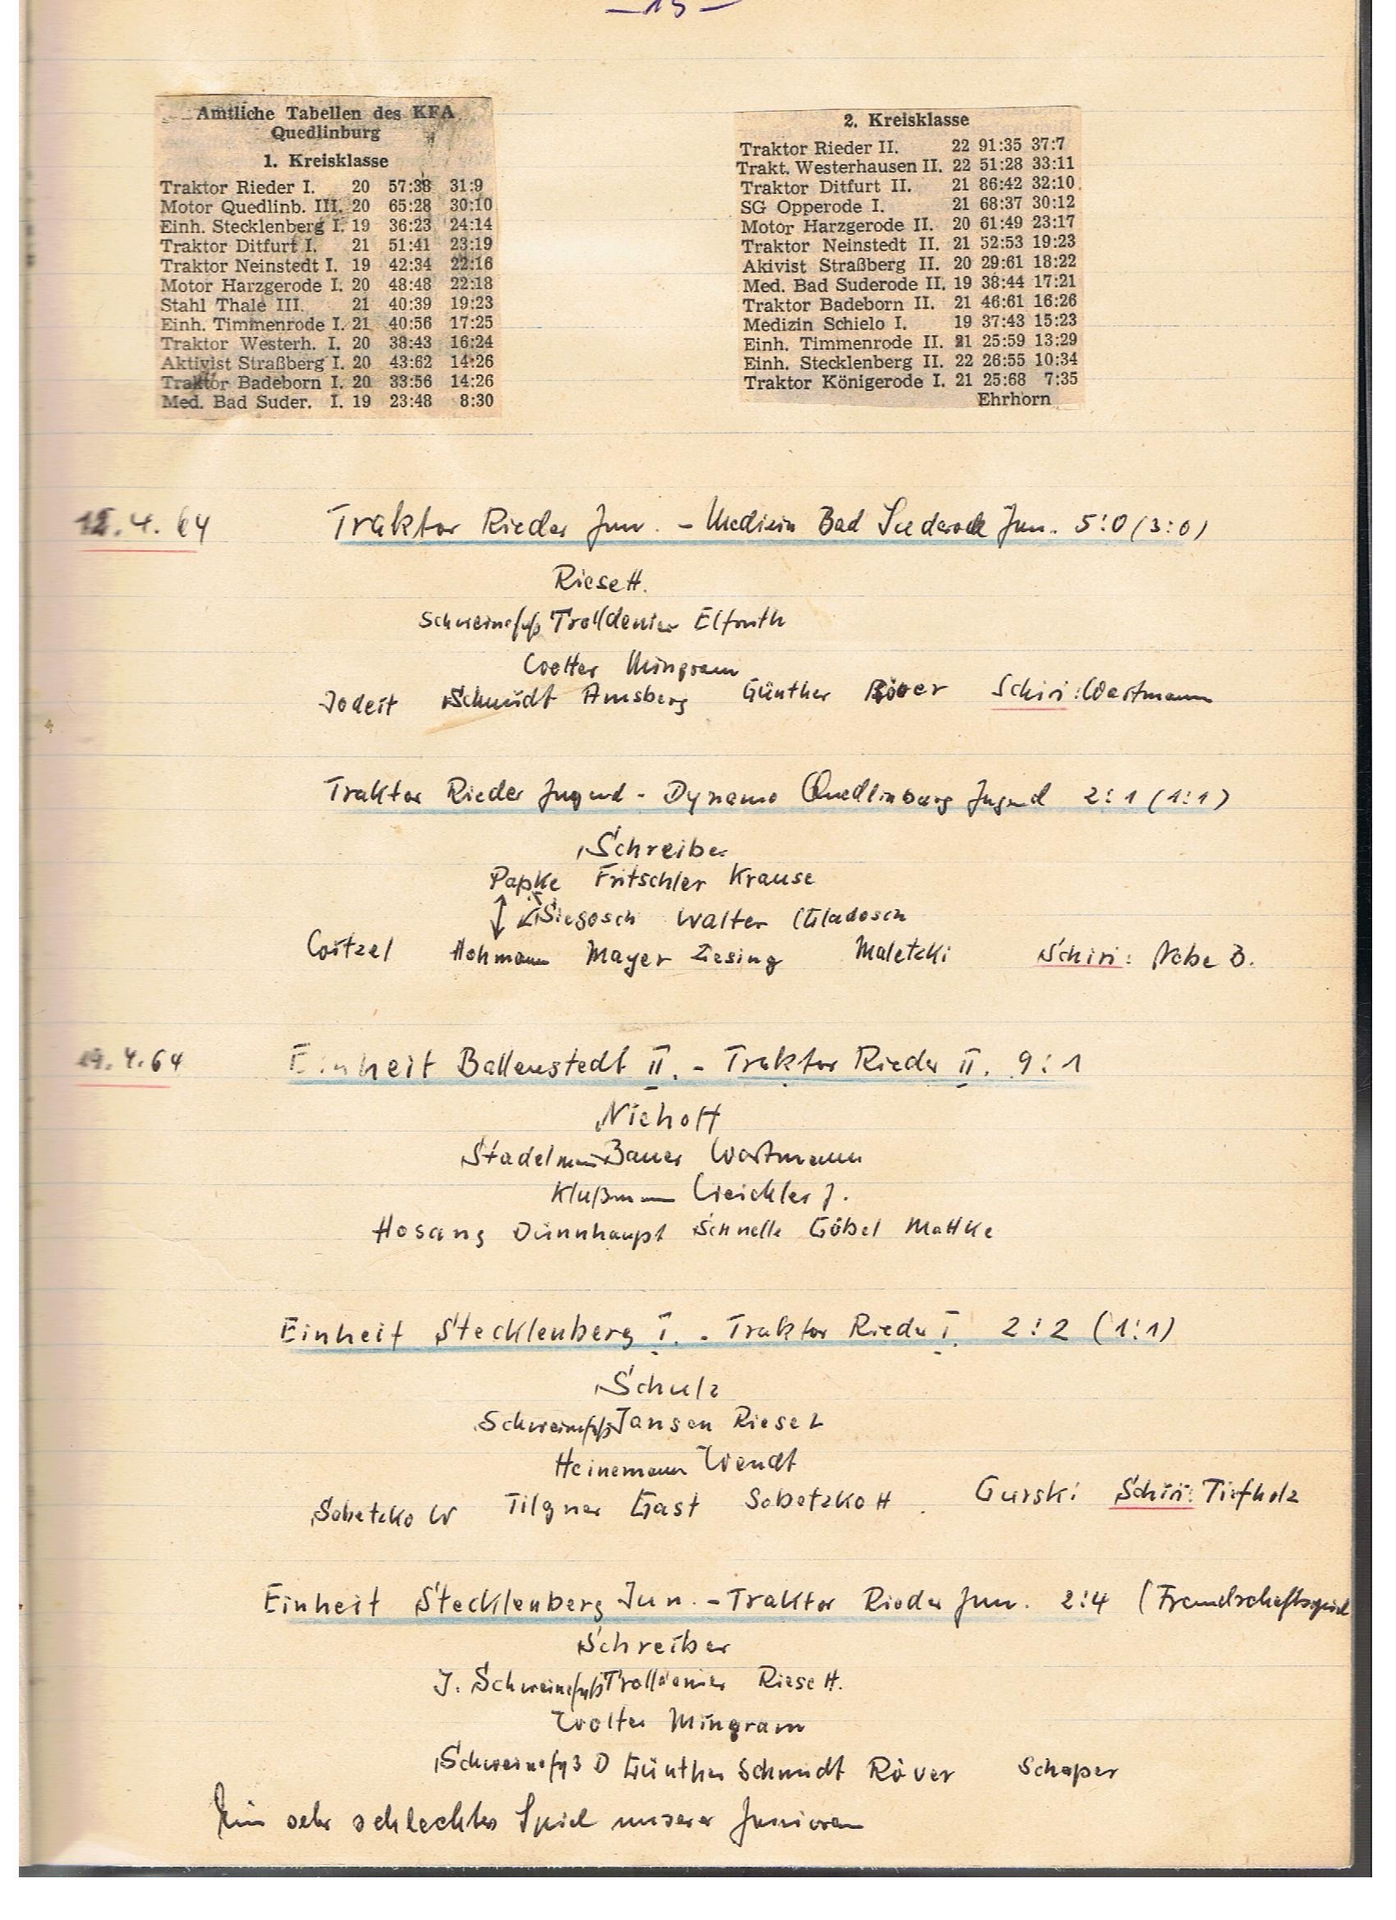 – 15 –
Amtliche Tabellen des KFA
Quedlinburg
1. Kreisklasse
Traktor Rieder I. 20 57:38 31:9
Motor Quedlinb. III. 20 65:28 30:10
Einh. Stecklenberg I. 19 36:23 24:14
Traktor Ditfurt I. 21 51:41 23:19
Traktor Neinstedt I. 19 42:34 22:16
Motor Harzgerode I. 20 48:48 22:18
Stahl Thale III. 21 40:39 19:23
Einh. Timmenrode I. 21 40:56 17:25
Traktor Westerh. I. 20 38:43 16:24
Aktivist Straßberg I. 20 43:62 14:26
Traktor Badeborn I. 20 33:56 14:26
Med. Bad Suder. I. 19 23:48 8:30
2. Kreisklasse
Traktor Rieder II. 22 91:35 37:7
Trakt. Westerhausen II. 22 51:28 33:11
Traktor Ditfurt II. 21 86:42 32:10
SG Opperode I. 21 68:37 30:12
Motor Harzgerode II. 20 61:49 23:17
Traktor Neinstedt II. 21 52:53 19:23
Akivist Straßberg II. 20 29:61 18:22
Med. Bad Suderode II. 19 38:44 17:21
Traktor Badeborn II. 21 46:61 16:26
Medizin Schielo I. 19 37:43 15:23
Einh. Timmenrode II. 21 25:59 13:29
Einh. Stecklenberg II. 22 26:55 10:34
Traktor Königerode I. 21 25:68 7:35
Ehrhorn
12.4.64 Traktor Rieder Jun. - Medizin Bad Suderode Jun. 5:0 (3:0)
Riese H.
Schweinefuß Trolldenier Elfruth
Wolter Mingram
Jodeit Schmidt Amsberg Günther Röver Schiri: Wartmann
Traktor Rieder Jugend - Dynamo Quedlinburg Jugend 2:1 (1:1)
Schreiber
Papke Fritschler Krause
Siegosch Walter Gladosch
Hohmann Mayer Ziesing Maletzki Schiri: Nebe B.
19.4.64 Einheit Ballenstedt II. - Traktor Rieder II. 9:1
Niehoff
Stadelmann Bauer Wartmann
Klußmann Weichler J.
Hosang Dünnhaupt Schnelle Göbel Mattke
Einheit Stecklenberg I. - Traktor Rieder I. 2:2 (1:1)
Schulz
Schweinefuß Jansen Riese L
Heinemann Wendt
Sobetzko W Tilgner Gast Sobetzko H. Gurski Schiri: Tiefholz
Einheit Stecklenberg Jun. - Traktor Rieder Jun. 2:4 (Freundschaftsspiel
Schreiber
J. Schweinefuß Trolldenier Riese H.
Wolter Mingram
Schweinefuß D Günther Schmidt Röver Schaper
Ein sehr schlechtes Spiel unserer Junioren